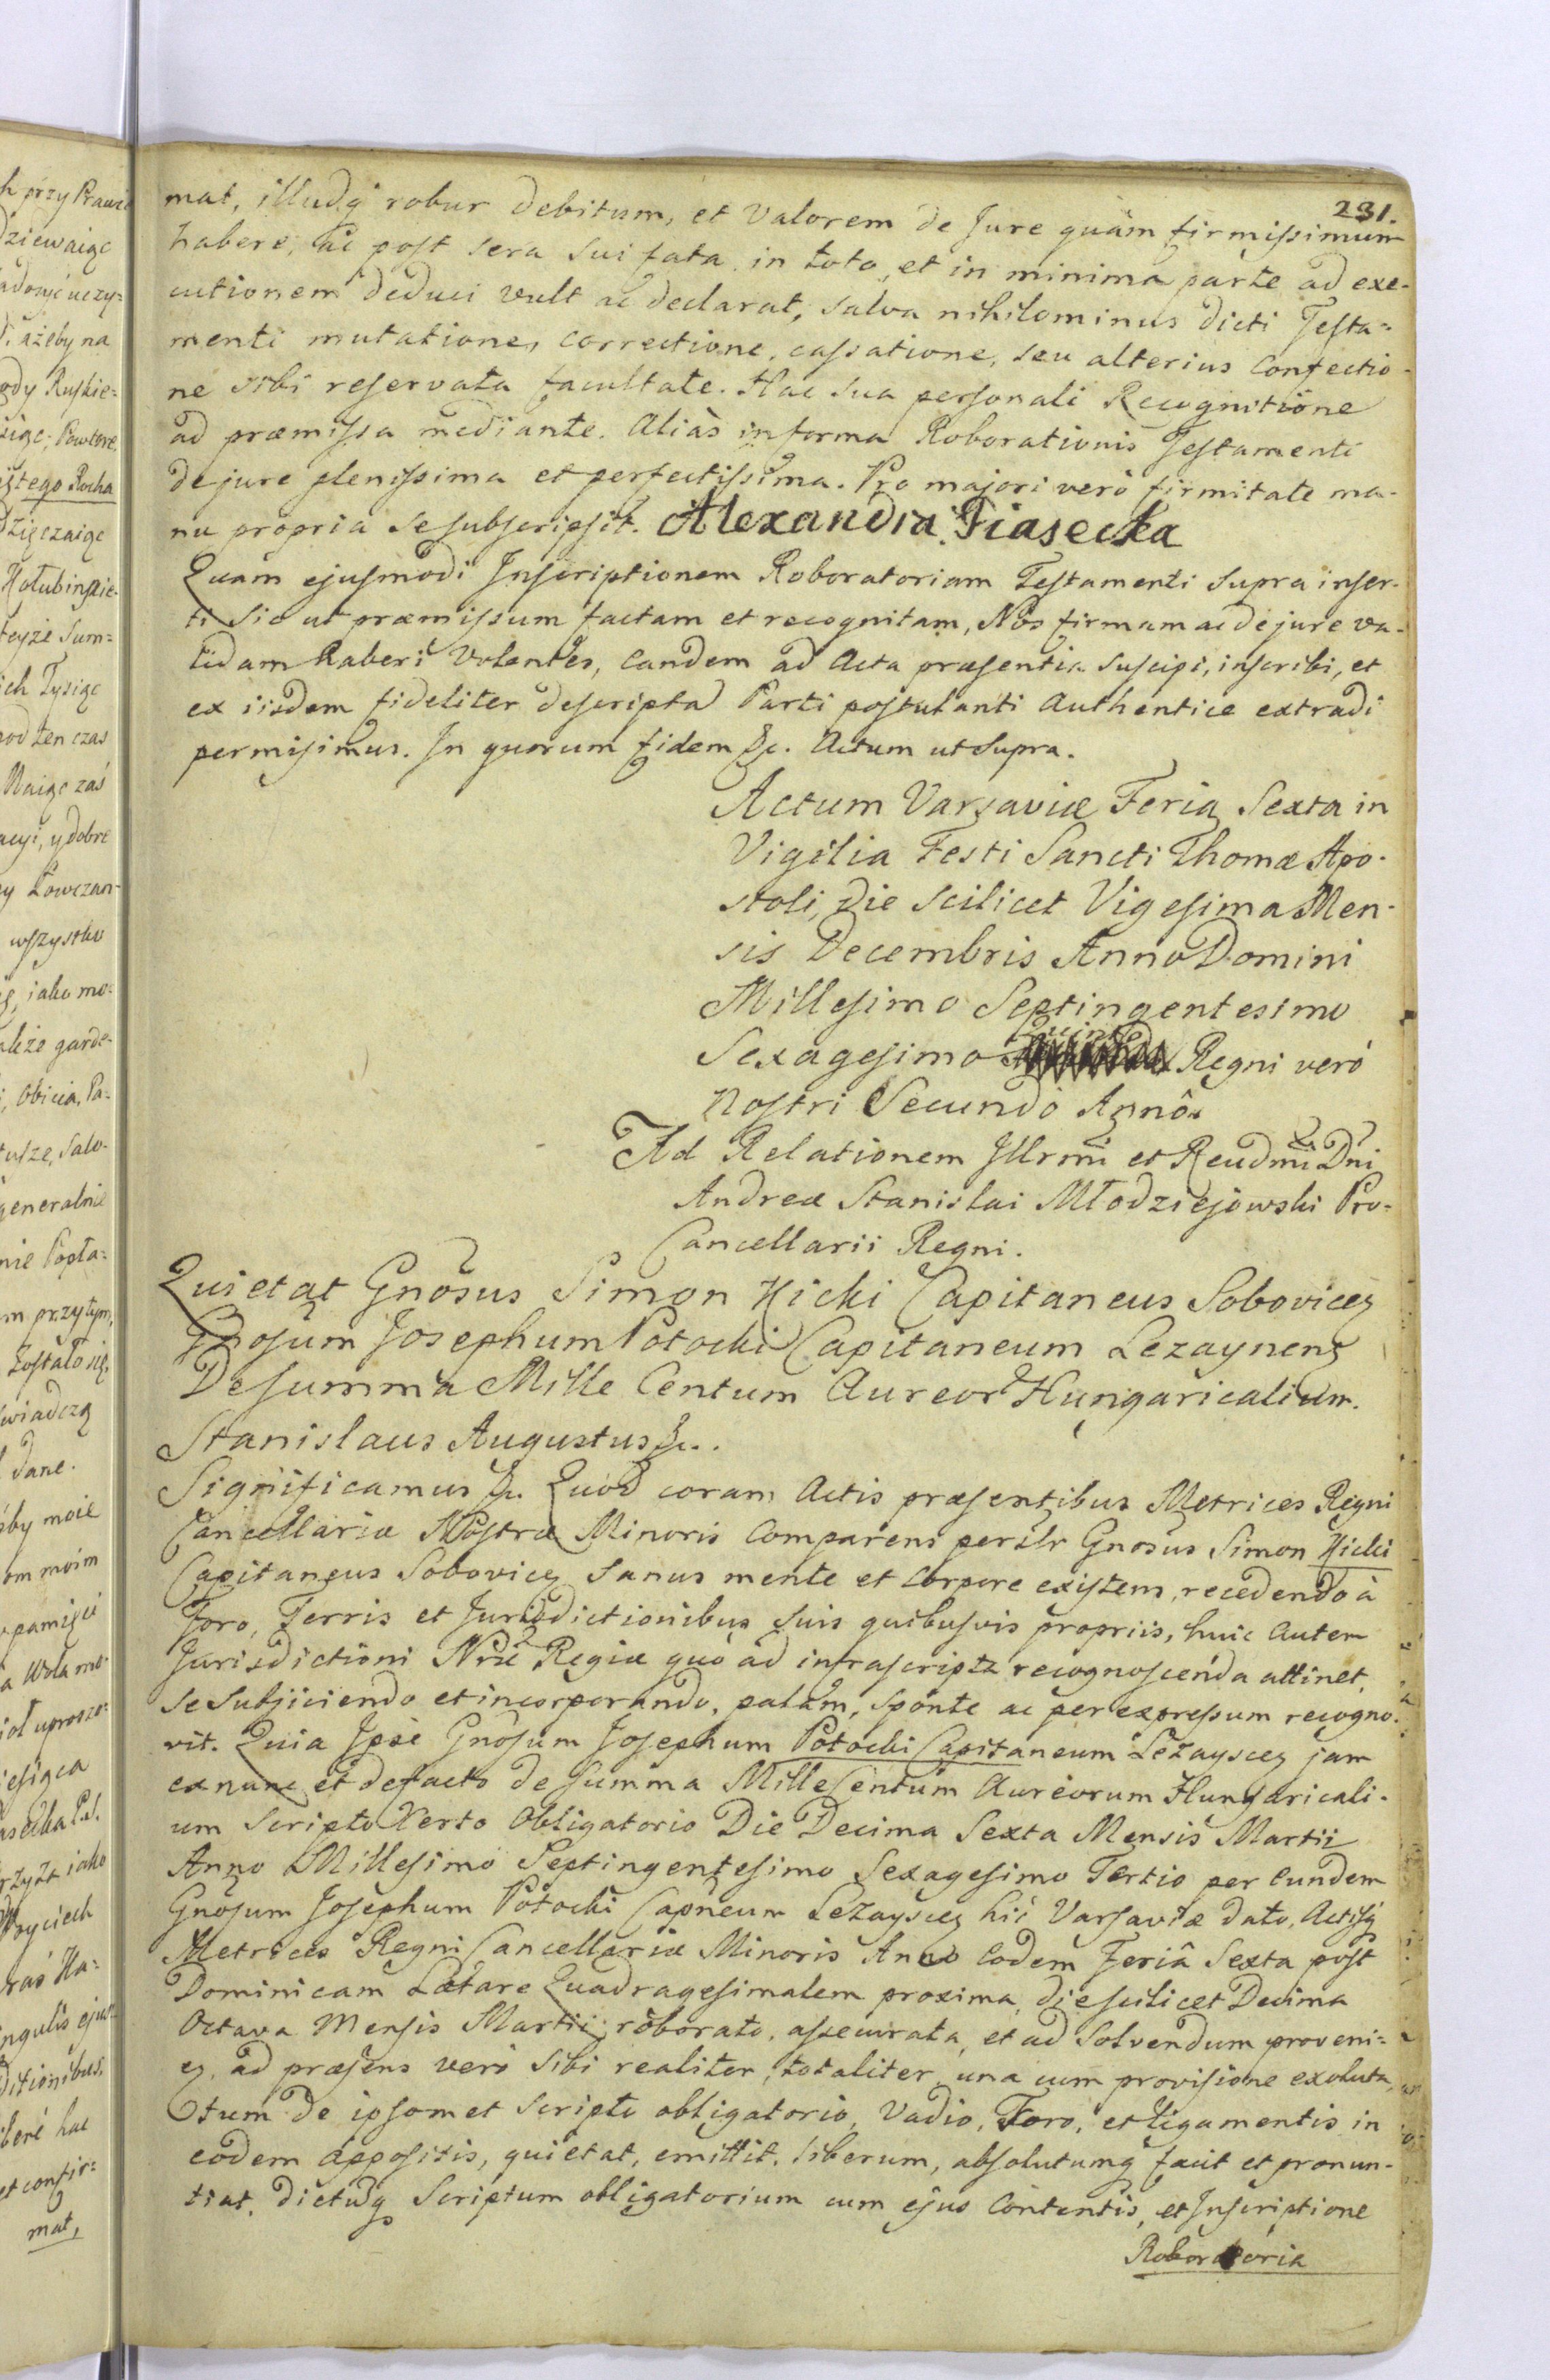 231.
mat, illudq̃ robur debitum, et valorem de Jure quàm firmissimum
habere, ac post sera sui fata in toto, et in minima parte ad exe-
cutionem deduci vult ac declarat, salva nihilominus dicti Testa=
menti mutatione, correctione, cassatione, seu alterius confectio-
ne sibi reservata facultate. Hac sua personali Recognitione
ad præmissa mediante. Aliàs in forma Roborationis Testamenti
de jure plenissima et perfectissima. Pro majori verò firmitate ma-
nu propria se subscripsit. Alexandra Piasecka
Quam ejusmodi Inscriptionem Roboratoriam Testamenti supra inser-
ti sic ut præmissum factam et recognitam, Nos firmam ac de jure va-
lidam haberi volentes, eandem ad Acta præsentia suscipi, inscribi, et
ex iisdem fideliter descripta Parti postulanti Authentice extradi
permisimus. In quorum fidem &c. Actum ut supra.
Actum Varsaviæ Feria Sexta in
Vigilia Festi Sancti Thomæ Apo-
stoli, die scilicet Vigesima Men-
sis Decembris Anno Domini
Millesimo Septingentesimo
Sexagesimo Quinto Regni verò
Nostri Secundo Anno.
Ad Relationem Illrmi et Reudmi Dni
Andreæ Stanislai Młodziejowski Pro-
Cancellarii Regni.
Quietat Gnosus Simon Hicki Capitaneus Sobovicen̄
Gnosum Josephum Potocki Capitaneum Lezaynens
De summa Mille Centum Aureor Hungaricalium.
Stanislaus Augustus &c.
Significamus &c. Quod coram Actis præsentibus Metrices Regni
Cancellariæ Nostræ Minoris comparens persr Gnosus Simon Hicki
Capitaneus Sobovicen̄ sanus mente et corpore existens, recedendo à
Foro, Terris et Jurisdictionibus suis quibusvis propriis, huic autem
Jurisdictioni Nræ Regiæ quò ad infrascripta recognoscenda attinet,
se subjiciendo et incorporando, palàm, spontè ac per expressum recogno-
vit. Quia Ipse Gnosum Josephum Potocki Capitaneum Leżayscen̄ jam
ex nunc et de facto de summa Mille Centum Aureorum Hungaricali-
um Scripto Certo Obligatorio Die Decima Sexta Mensis Martii
Anno Millesimo Septingentesimo Sexagesimo Tertio per eundem
Gnosum Josephum Potocki Capneum Leżayscen̄ hic Varsaviæ dato, Actisq̃
Metrices Regni Cancellariæ Minoris Anno eodem Feriâ Sexta post
Dominicam Lætare Quadragesimalem proxima, die scilicet Decima
Octava Mensis Martii roborato, assecurata, et ad solvendum proveni=
en̄, ad præsens verò sibi realiter, totaliter, una cum provisione exoluta,
tum de ipsomet scripto obligatorio, Vadio, Foro, et ligamentis in
eodem appositis, quietat, emittit, liberum, absolutumq̃ facit et pronun-
tiat, dictudq̃ Scriptum obligatorium cum ejus Contentis, et Inscriptione
Roboratoria